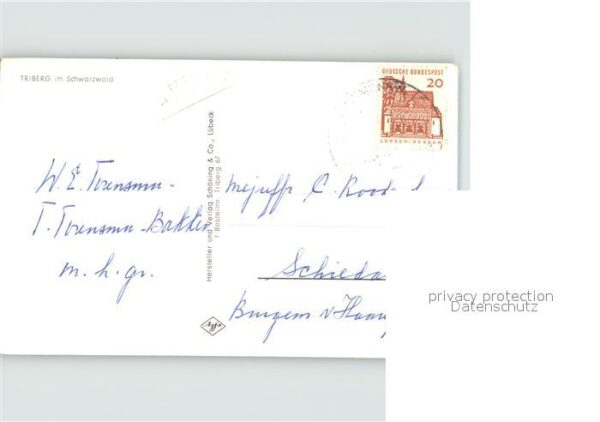 TRIBERG im Schwarzwald
DEUTSCHE BUNDESPOST
20
LORSCH/HESSEN
W. E.
T. Bakker
m. h. gr.
Hersteller und Verlag Schöning & Co., Lübeck
Bestellnr. Triberg 67
Mejuffr C. Rood
Schieda
Burgem v Haa
privacy protection
Datenschutz